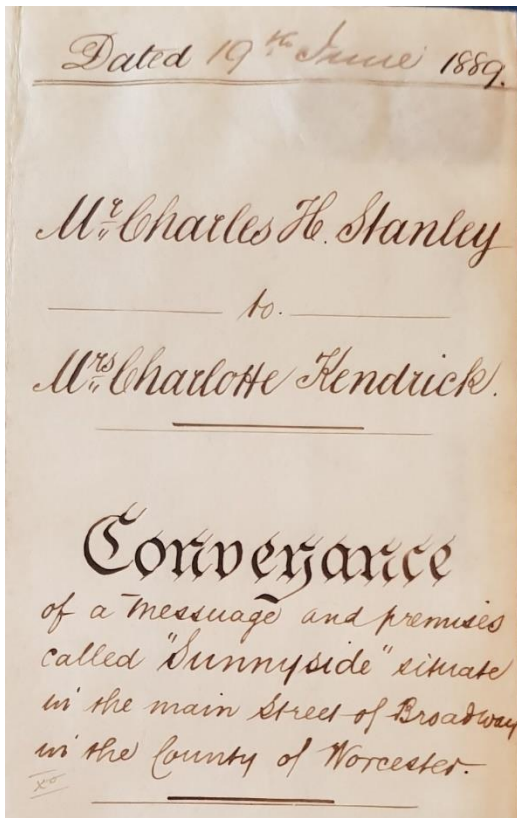 Dated 19th June 1889.
Mr. Charles H. Stanley
to.
Mrs Charlotte Kendrick.
Conveyance
of a messuage and premises
called "Sunnyside" situate
in the main Street of Broadway
in the County of Worcester.